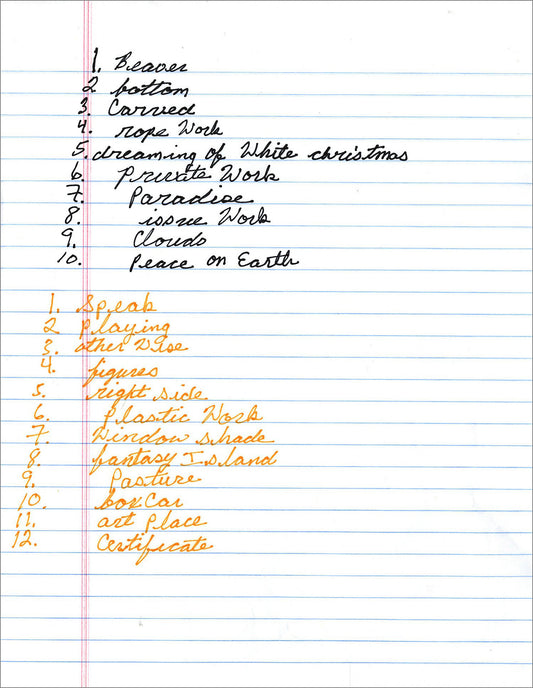 1. Beaver
2 bottom
3. Carved
4. rope Work
5. dreaming of White christmas
6. Private Work
7. Paradise
8. issue Work
9. Clouds
10. Peace on Earth
1. Speak
2 Playing
3. other Wise
4. figures
5. right side.
6. Plastic Work
7. Window shade
8. fantasy Island
9. Pasture
10. box Car
11. art Place
12. Certificate